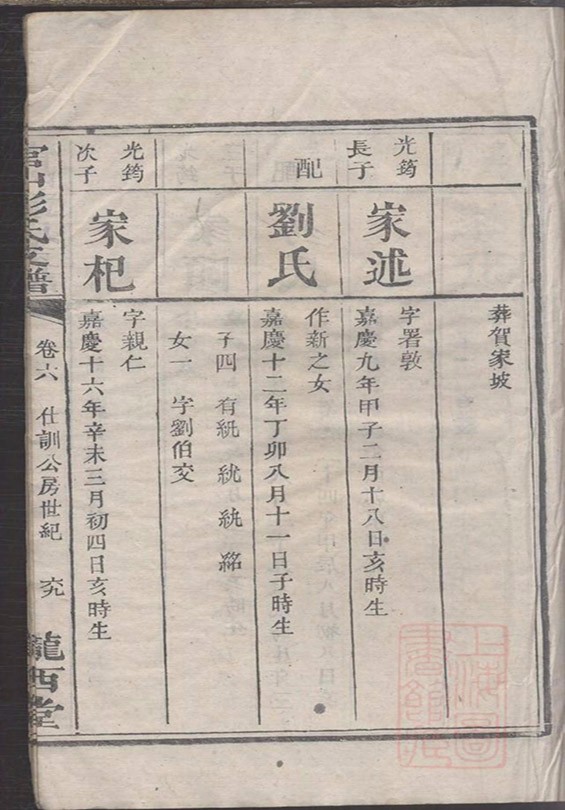 葬賀家坡
光筠
長子
家述
字署敦
嘉慶九年甲子二月十八日亥時生
配
劉氏
作新之女
嘉慶十二年丁卯八月十一日子時生
子四 有統 統 統 銘
女一 字劉伯交
光筠
次子
家杞
字親仁
嘉慶十六年辛未三月初四日亥時生
彭氏支譜
卷六 仕訓公房世紀 究
隴西堂
上海圖書館藏